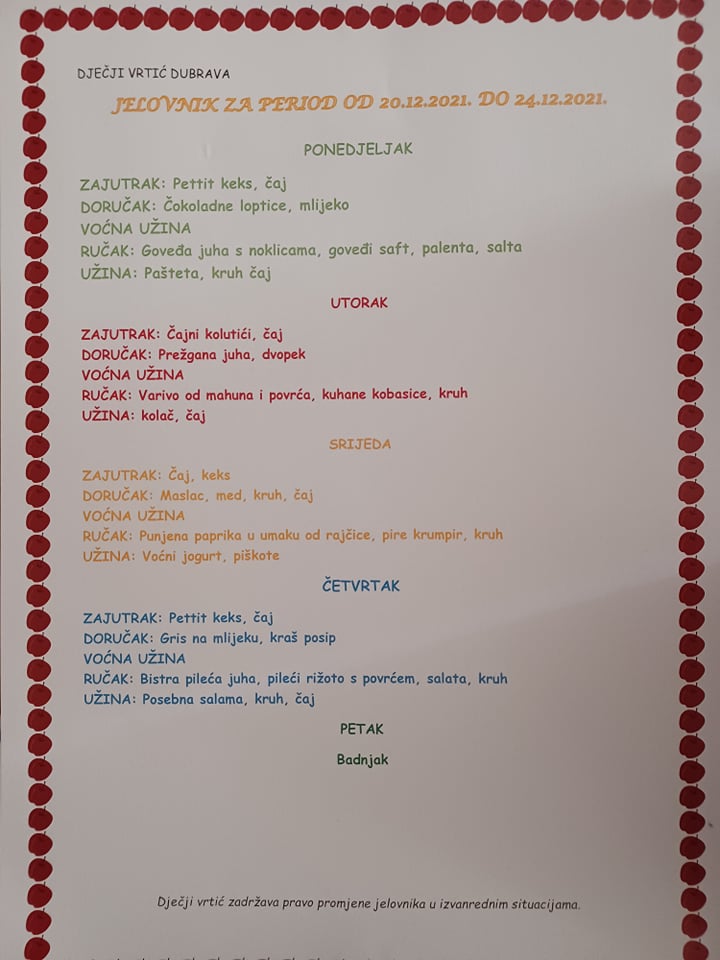 DJEČJI VRTIĆ DUBRAVA
JELOVNIK ZA PERIOD OD 20.12.2021. DO 24.12.2021.
PONEDJELJAK
ZAJUTRAK: Pettit keks, čaj
DORUČAK: Čokoladne loptice, mlijeko
VOĆNA UŽINA
RUČAK: Goveđa juha s noklicama, goveđi saft, palenta, salta
UŽINA: Pašteta, kruh čaj
UTORAK
ZAJUTRAK: Čajni kolutići, čaj
DORUČAK: Prežgana juha, dvopek
VOĆNA UŽINA
RUČAK: Varivo od mahuna i povrća, kuhane kobasice, kruh
UŽINA: kolač, čaj
SRIJEDA
ZAJUTRAK: Čaj, keks
DORUČAK: Maslac, med, kruh, čaj
VOĆNA UŽINA
RUČAK: Punjena paprika u umaku od rajčice, pire krumpir, kruh
UŽINA: Voćni jogurt, piškote
ČETVRTAK
ZAJUTRAK: Pettit keks, čaj
DORUČAK: Gris na mlijeku, kraš posip
VOĆNA UŽINA
RUČAK: Bistra pileća juha, pileći rižoto s povrćem, salata, kruh
UŽINA: Posebna salama, kruh, čaj
PETAK
Badnjak
Dječji vrtić zadržava pravo promjene jelovnika u izvanrednim situacijama.